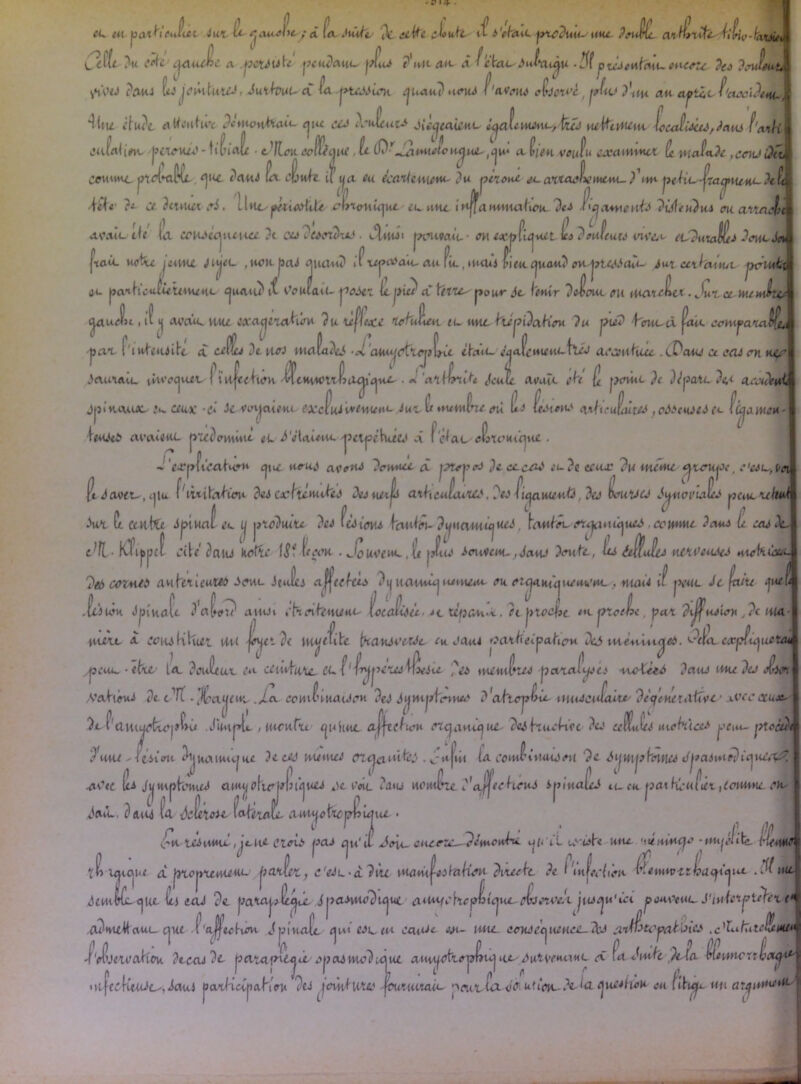 et en particulier sur le gauche ; à la suite de cette chute il s'était produit une double arthrite tibio-tarsienne
Celle du côté gauche a persisté pendant plus d'un an à l'état suraigu. Il présentait encore des douleurs
vives dans les jointures, surtout à la pression quand nous l'avons observé, plus d'un an après l'accident.
Une étude attentive démontrait que ces douleurs siégeaient également, très nettement localisées, dans l'arti
culation péronéo-tibiale. Mon collègue, le Dr qui a bien voulu examiner le malade, considère
comme probable, que dans la chute il y a eu écartement du péroné et arrachement d'un petit fragment de la
tête de ce dernier os. Une périostite chronique et une inflammation des ligaments distendus ou arrachés
avait été la conséquence de ces désordres. Ainsi pouvait-on expliquer les douleurs vives et durables dont souf
frait notre jeune sujet, non pas quand il reposait au lit, mais bien quand on pressait sur certains points
et particulièrement quand il voulait poser le pied à terre pour se tenir debout ou marcher. Sur ce membre
gauche, il y avait une exagération du réflexe rotulien et une trépidation du pied tout à fait comparable
par l'intensité à celles de nos malades. L'amyotrophie était également très accentuée. Dans ce cas on ne
saurait invoquer l'infection blennorrhagique. L'arthrite seule avait été le point de départ des accidents
spinaux et ceux-ci se voyaient exclusivement sur le membre où les lésions articulaires, osseuses et ligamen-
teuses avaient prédominé et s'étaient perpétuées à l'état chronique.
L'explication que nous avons donnée à propos de ce cas et de ceux du même groupe, c'est, vous
le savez, que l'irritation des extrémités des nerfs articulaires, des ligaments, des bourses synoviales peut retentir
sur le centre spinal et y produire des lésions tantôt dynamiques, tantôt organiques, comme dans le cas de
M. Klippel cité dans notre 18e leçon. Souvent, le plus souvent, sans doute, les cellules nerveuses motrices
des cornes antérieures sont seules affectées dynamiquement ou organiquement, mais il peut se faire que la
lésion spinale d'abord ainsi étroitement localisée se répande, de proche en proche, par diffusion, de ma-
nière à constituer un foyer de myélite transverse ou sans participation des méninges. Cela expliquerait
peut-être la douleur en ceinture et l'hyperesthésie des membres paralysés notées dans une des obser
vations de M. Raymond. La combinaison des symptômes d'atrophie musculaire dégénérative avec ceux
de l'amyotrophie simple, montre qu'une affection organique destructive des cellules motrices peut procéder
d'une lésion dynamique de ces mêmes organites. Enfin la combinaison de symptômes spasmodiques
avec les symptômes amyotrophiques se voit dans nombre d'affections spinales et en particulier, comme on
sait, dans la sclérose latérale amyotrophique.
En résumé, je ne crois pas qu'il soit encore démontré qu'il existe une méningo-myélite blennor
rhagique à proprement parler, c'est-à-dire manifestation directe de l'infection blennorrhagique. Il me
semble que les cas de paraplégie spasmodique amyotrophique observés jusqu'ici peuvent s'interpréter en
admettant que l'affection spinale qui est en cause est une conséquence des arthropathies. Naturellement
l'observation de cas de paraplégie spasmodique amyotrophique survenant à la suite de la blennorrhagie
infectieuse, sans participation des jointures fournirait pour la solution de la question en litige un argument